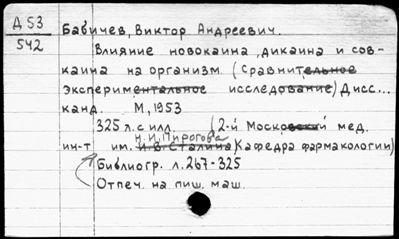 Д 53
542
Бабичев, Виктор Андреевич.
Влияние новокаина, дикаина и сов-
каина на организм (Сравнительное
экспериментальное исследование) Дисс...
канд. М, 1953
325 л. с илл. (2-й Московский мед.
Н.И. Пирогова
ин-т им. И.В. Сталина (Кафедра фармакологии)
Библиогр. л. 267-325
Отпеч. на пиш. маш.